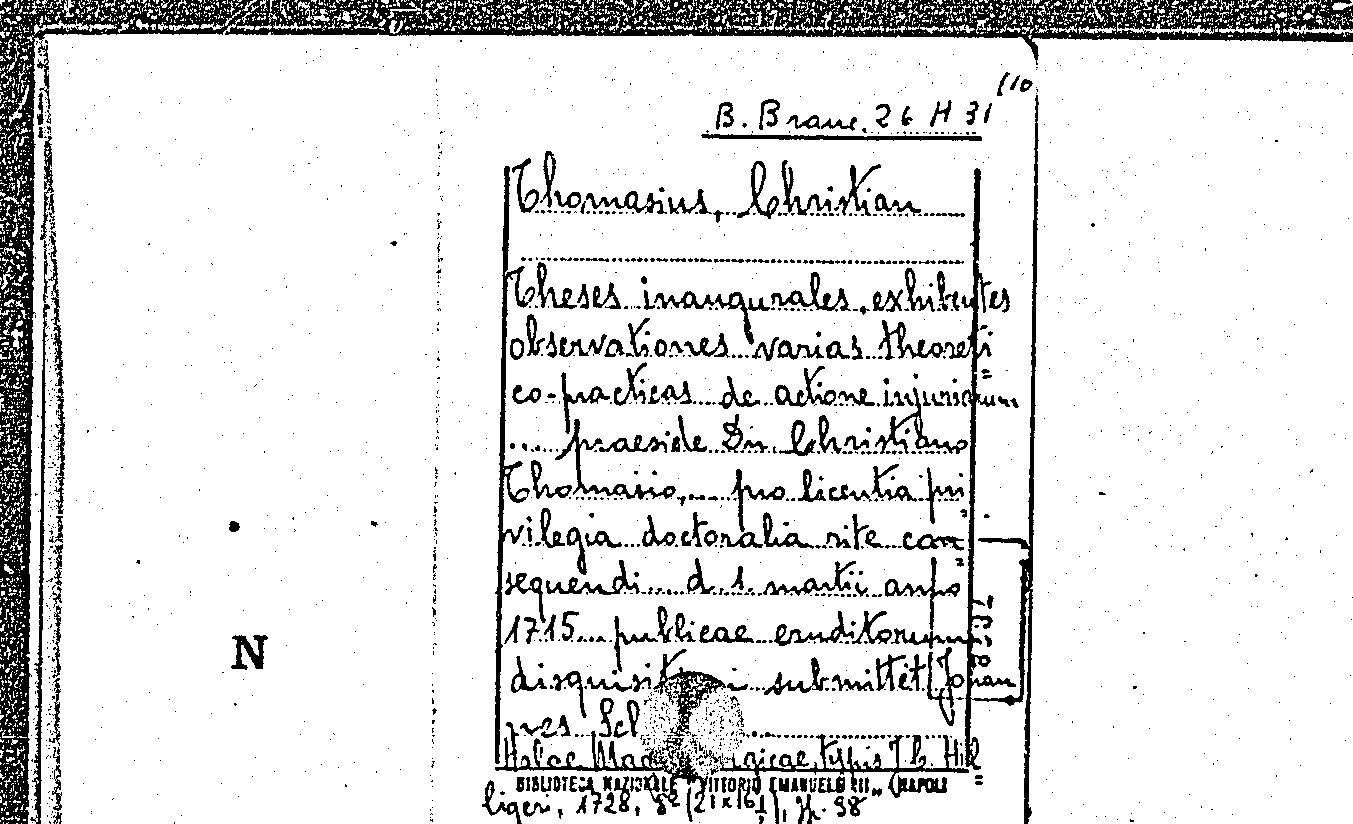 110
B. Branc. 26 H 31
Thomasius, Christian
Theses inaugurales, exhibentes
observationes varias theoreti=
co-practicas de actione injuriarum
... praeside Dn. Christiano
Thomasio,... pro licentia pri=
vilegia doctoralia rite con=
sequendi... d. 1. martii anno
1715... publicae eruditorum
disquisit i submittet Johan
nes Sch
Halae Mag gicae, typis J. C. Hil=
BIBLIOTECA NAZIONALE "VITTORIO EMANUELE III" (NAPOLI
ligeri, 1728, 8° (21x16
N